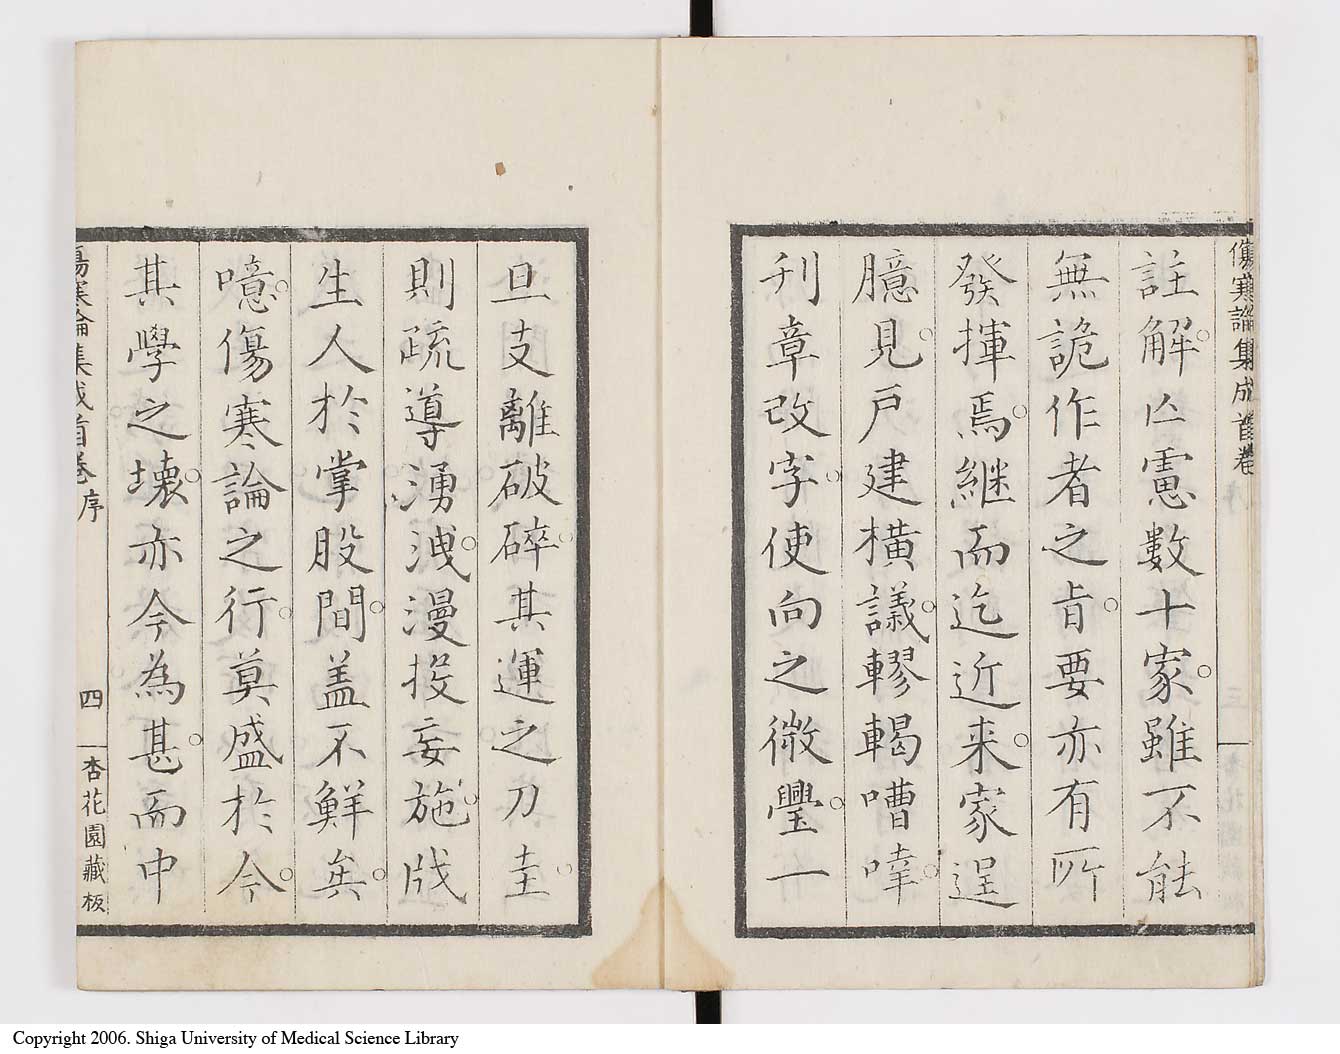 傷寒論集成首卷
註解亡慮數十家雖不能
無詭作者之旨要亦有所
發揮焉継而迄近来家逞
臆見戸建横議轇轕嘈啈
刋章改字使向之微璺一
旦支離破碎其運之刀圭
則疏導湧洩漫投妄施戕
生人於掌股間盖不鮮矣
噫傷寒論之行莫盛於今
其學之壊亦今為甚而中
傷寒論集成首卷 序 四 杏花園藏板
Copyright 2006. Shiga University of Medical Science Library